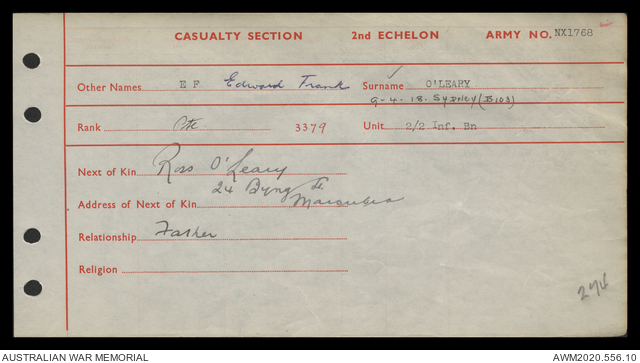 CASUALTY SECTION 2nd ECHELON ARMY NO. NX1768
Other Names E F Edward Frank Surname O'LEARY
9-4-18. SYDNEY (B103)
Rank Pte 3379 Unit 2/2 Inf. Bn
Next of Kin Ross O'Leary
24 Byng St
Address of Next of Kin Maroubra
Relationship Father
Religion
274
AUSTRALIAN WAR MEMORIAL AWM2020.556.10